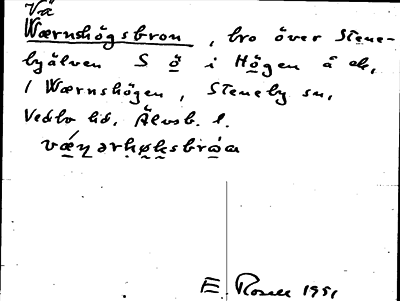 Vä
Wærnshögsbron, bro över Stene-
byälven S ö i Högen å ek,
i Wærnshögen, Steneby sn,
Vedbo hd, Älvsb. l.
E. Rosell 1951